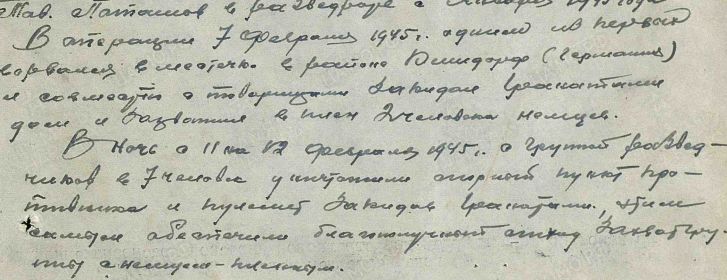 Тов. Латышов в разведроте с января 1945 года
В операции 7 февраля 1945г. одним из первых
ворвался в местечко в районе (Германия)
и совместно с товарищами закидал гранатами
дом и захватил в плен 2 человека немцев.
В ночь с 11 на 12 февраля 1945г. с группой развед-
чиков в 7 человек уничтожили опорный пункт про-
тивника и пулемет закидав гранатами, этим
самым обеспечили благополучный отход захватгруп-
пы с немцем-пленным.